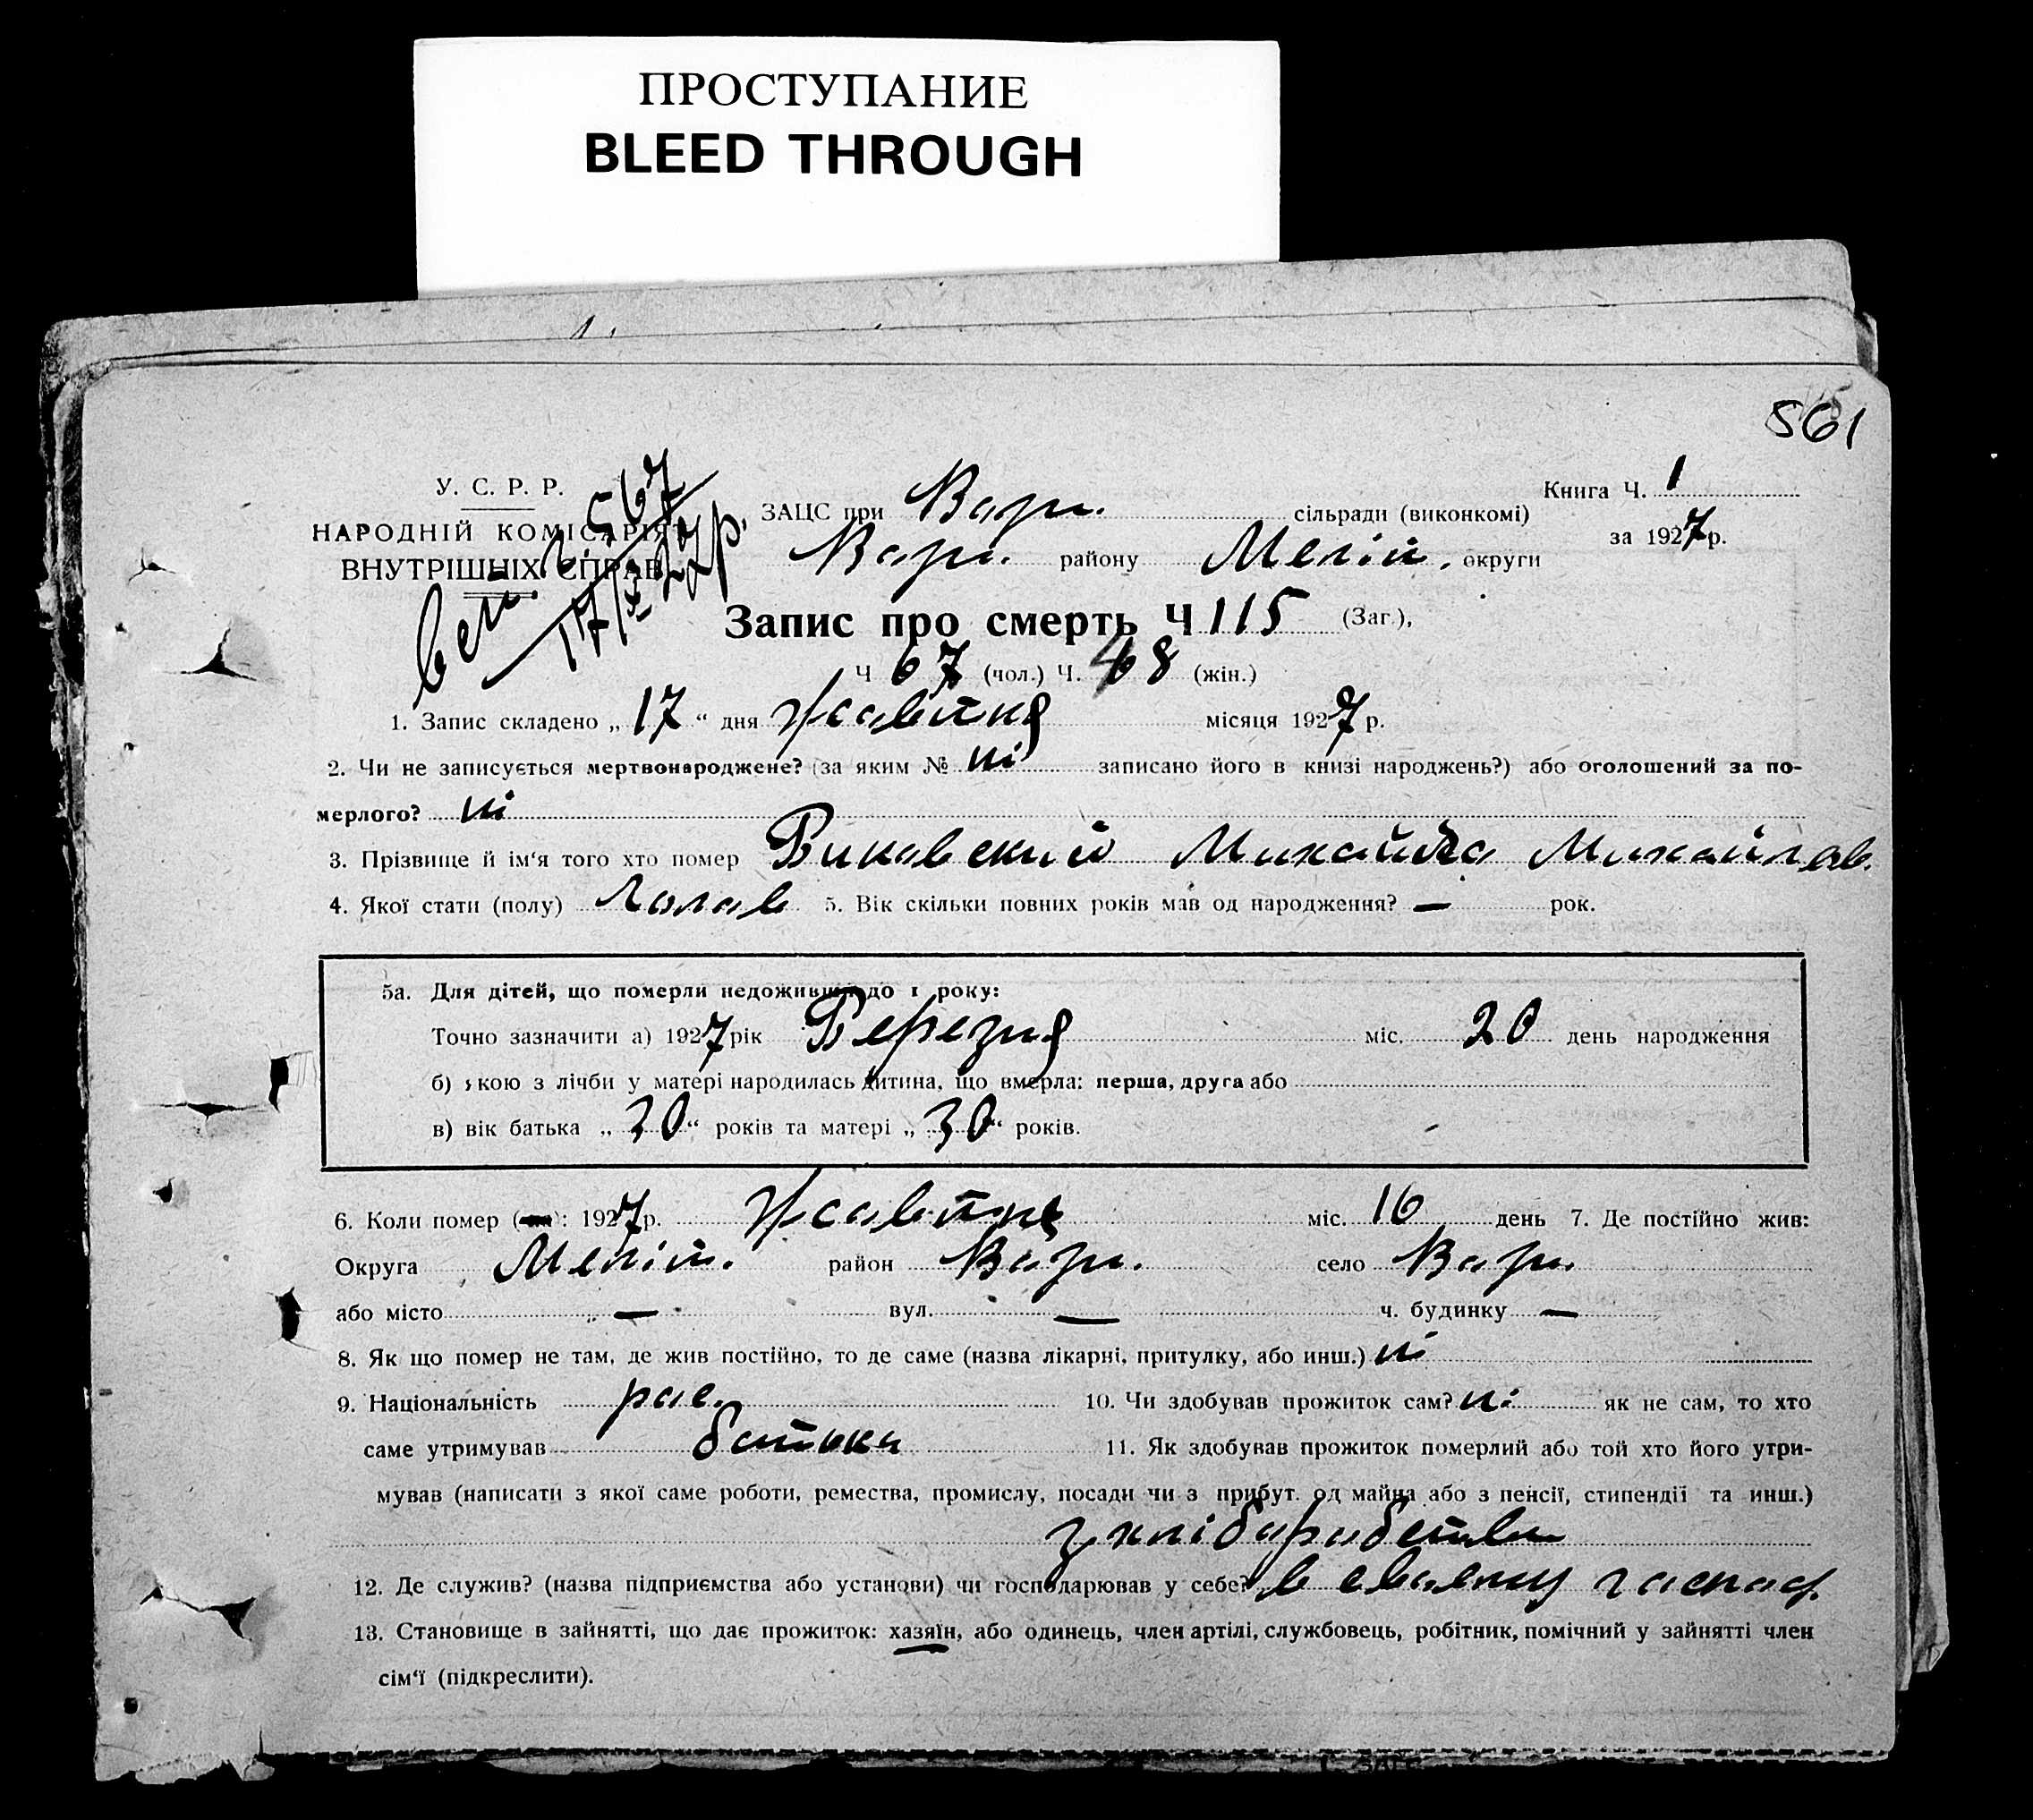 ПРОСТУПАНИЕ
BLEED THROUGH
561
У. С. Р. Р.
НАРОДНІЙ КОМІСАРІЯТ
ВНУТРІШНІХ СПРАВ
567
17/X 27р.
Книга Ч. 1
за 1927 р.
ЗАЦС при Вари. сільради (виконкомі)
Вари. району Меліт. округи
Запис про смерть Ч 115 (Заг.),
Ч 67 (чол.) Ч. 48 (жін.)
1. Запис складено „ 17 “ дня Жовтня місяця 1927 р.
2. Чи не записується мертвонароджене? (за яким № ні записано його в книзі народжень?) або оголошений за по-
мерлого? ні
3. Прізвище й ім‘я того хто помер Михайло Михайлов.
4. Якої стати (полу) Чолов 5. Вік скільки повних років мав од народження? — рок.
5а. Для дітей, що померли недоживши до 1 року:
Точно зазначити а) 1927 рік Березня міс. 20 день народження
б) якою з лічби у матері народилась дитина, що вмерла: перша, друга або
в) вік батька „ 30 “ років та матері „ 30 “ років.
6. Коли помер : 1927 р. Жовтня міс. 16 день 7. Де постійно жив:
Округа Меліт. район Вари. село Вари.
або місто — вул. — ч. будинку —
8. Як що помер не там, де жив постійно, то де саме (назва лікарні, притулку, або инш.) ні
9. Національність рос. 10. Чи здобував прожиток сам? ні як не сам, то хто
саме утримував батьки 11. Як здобував прожиток померлий або той хто його утри-
мував (написати з якої саме роботи, ремества, промислу, посади чи з прибут. од майна або з пенсії, стипендії та инш.)
з хліборобства
12. Де служив? (назва підприємства або установи) чи господарював у себе? в своєму господ.
13. Становище в зайнятті, що дає прожиток: хазяїн, або одинець, член артілі, службовець, робітник, помічний у зайнятті член
сім‘ї (підкреслити).